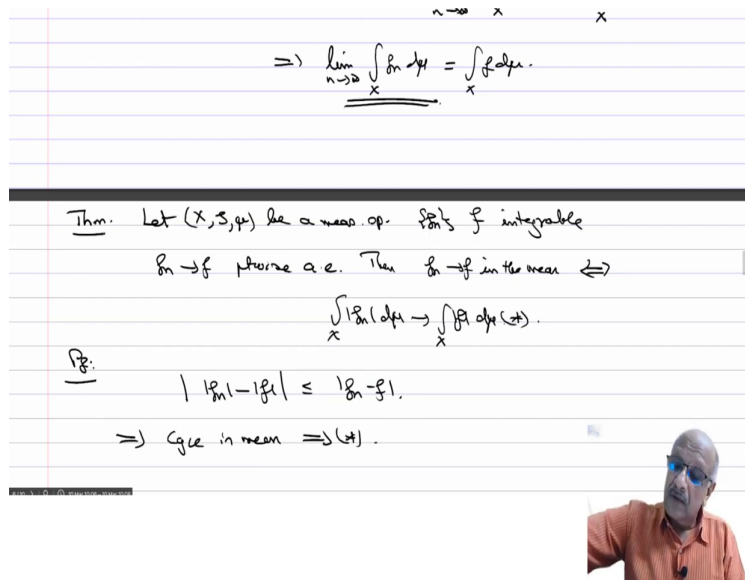 n→∞ X X
⇒ lim n→∞ ∫_X fn dμ = ∫_X f dμ.
Thm. Let (X, S, μ) be a meas. sp. {fn}, f integrable
fn → f ptwise a.e. Then fn → f in the mean ⇔
∫_X |fn| dμ → ∫_X |f| dμ (*).
Pf:
| |fn| - |f| | ≤ |fn - f|.
⇒ Cgce in mean ⇒ (*).